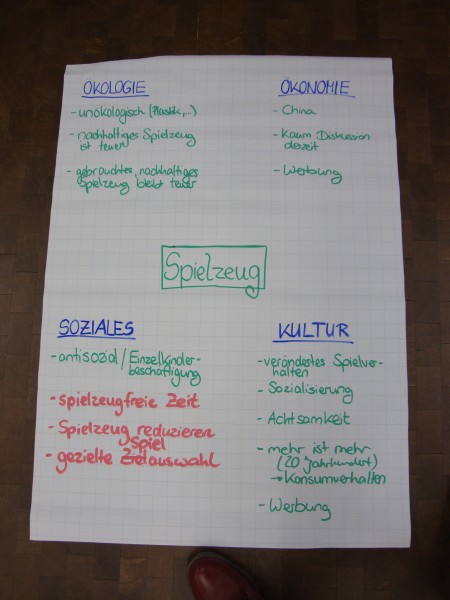 ÖKOLOGIE
- unökologisch (Plastik,...)
- nachhaltiges Spielzeug
ist teuer
- gebrauchtes, nachhaltiges
Spielzeug bleibt teuer
ÖKONOMIE
- China
- Kaum Diskussion
derzeit
- Werbung
Spielzeug
SOZIALES
- antisozial / Einzelkinder-
beschäftigung
- spielzeugfreie Zeit
- Spielzeug reduzieren
Spiel
- gezielte Zielauswahl
KULTUR
- verändertes Spielver-
halten
- Sozialisierung
- Achtsamkeit
- mehr ist mehr
(20 Jahrhundert)
→ Konsumverhalten
- Werbung